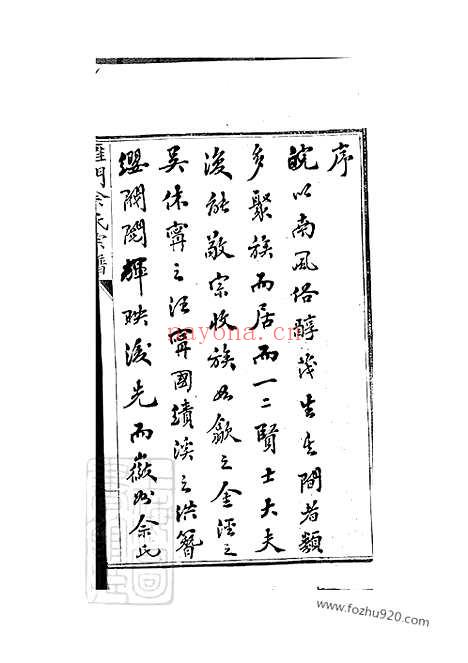 序
皖以南風俗醇茂生其間者類
多聚族而居而一二賢士大夫
復能敬宗收族如歙之金涇之
吳休寧之汪寧國績溪之洪簪
纓閥閱輝映後先而徽州余氏
門余氏宗譜
nayona.cn
www.fozhu920.com